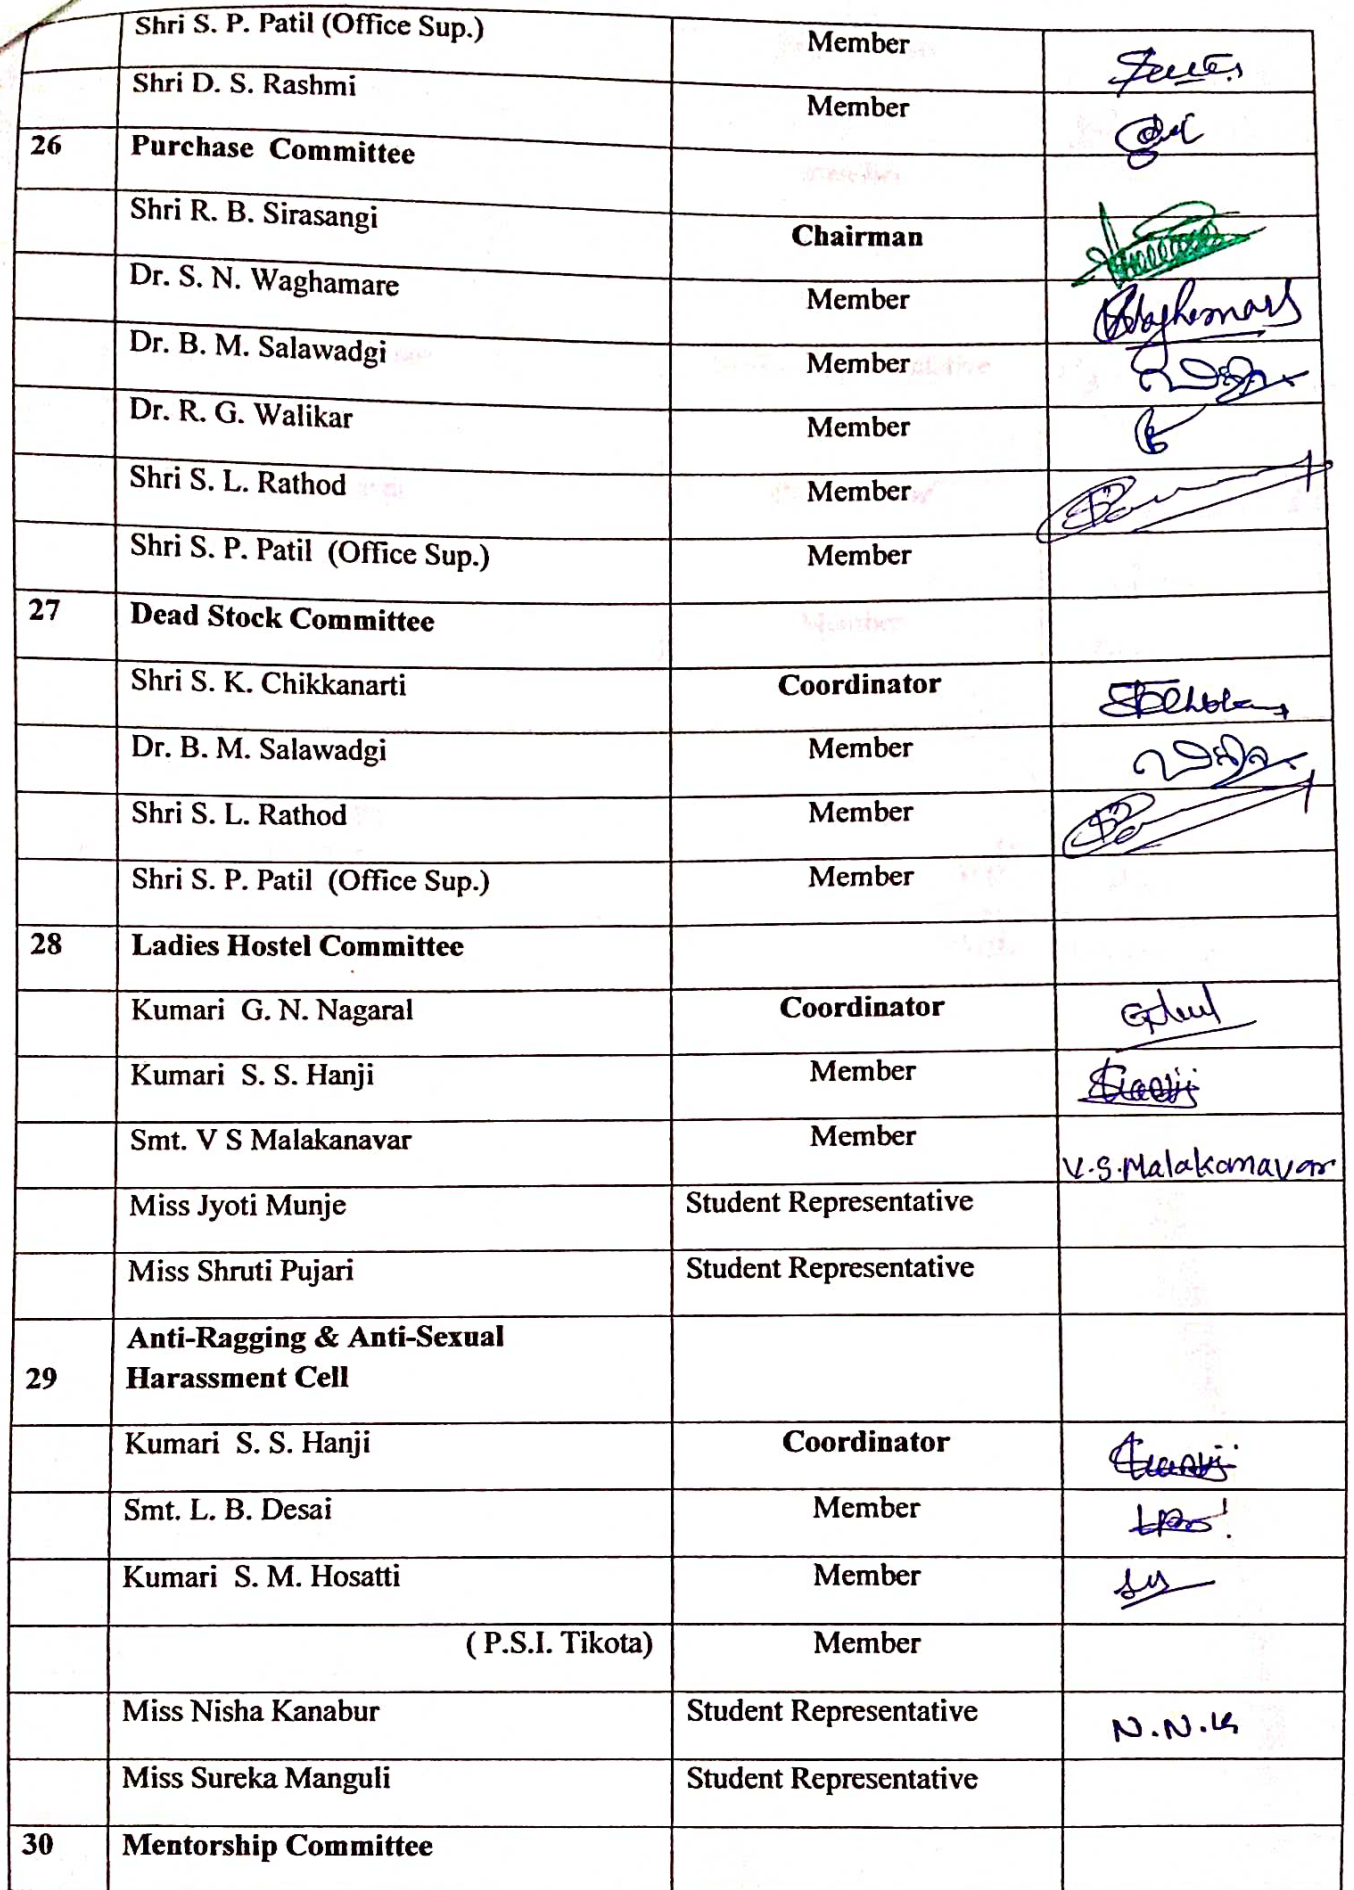 Shri S. P. Patil (Office Sup.) Member
Shri D. S. Rashmi Member
26 Purchase Committee
Shri R. B. Sirasangi Chairman
Dr. S. N. Waghamare Member
Dr. B. M. Salawadgi Member
Dr. R. G. Walikar Member
Shri S. L. Rathod Member
Shri S. P. Patil (Office Sup.) Member
27 Dead Stock Committee
Shri S. K. Chikkanarti Coordinator
Dr. B. M. Salawadgi Member
Shri S. L. Rathod Member
Shri S. P. Patil (Office Sup.) Member
28 Ladies Hostel Committee
Kumari G. N. Nagaral Coordinator
Kumari S. S. Hanji Member
Smt. V S Malakanavar Member V.S.Malakanavar
Miss Jyoti Munje Student Representative
Miss Shruti Pujari Student Representative
Anti-Ragging & Anti-Sexual
29 Harassment Cell
Kumari S. S. Hanji Coordinator
Smt. L. B. Desai Member
Kumari S. M. Hosatti Member
( P.S.I. Tikota) Member
Miss Nisha Kanabur Student Representative N.N.K
Miss Sureka Manguli Student Representative
30 Mentorship Committee